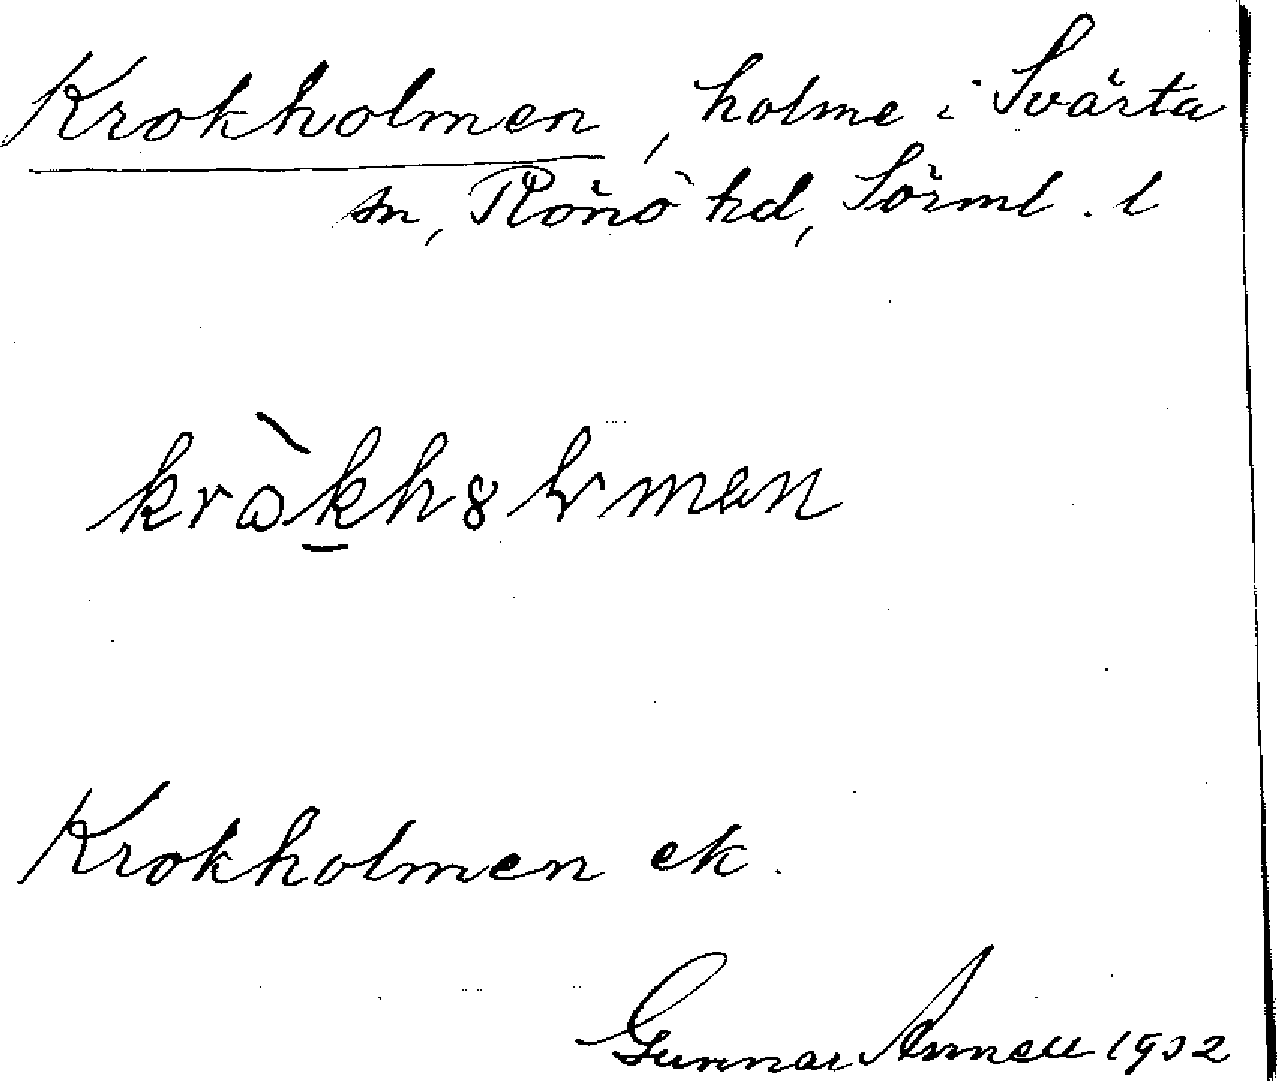 Krokholmen, holme i Svärta
sn, Rönö hd, Sörml. l
Krokholmen ek.
Gunnar Annell 1932